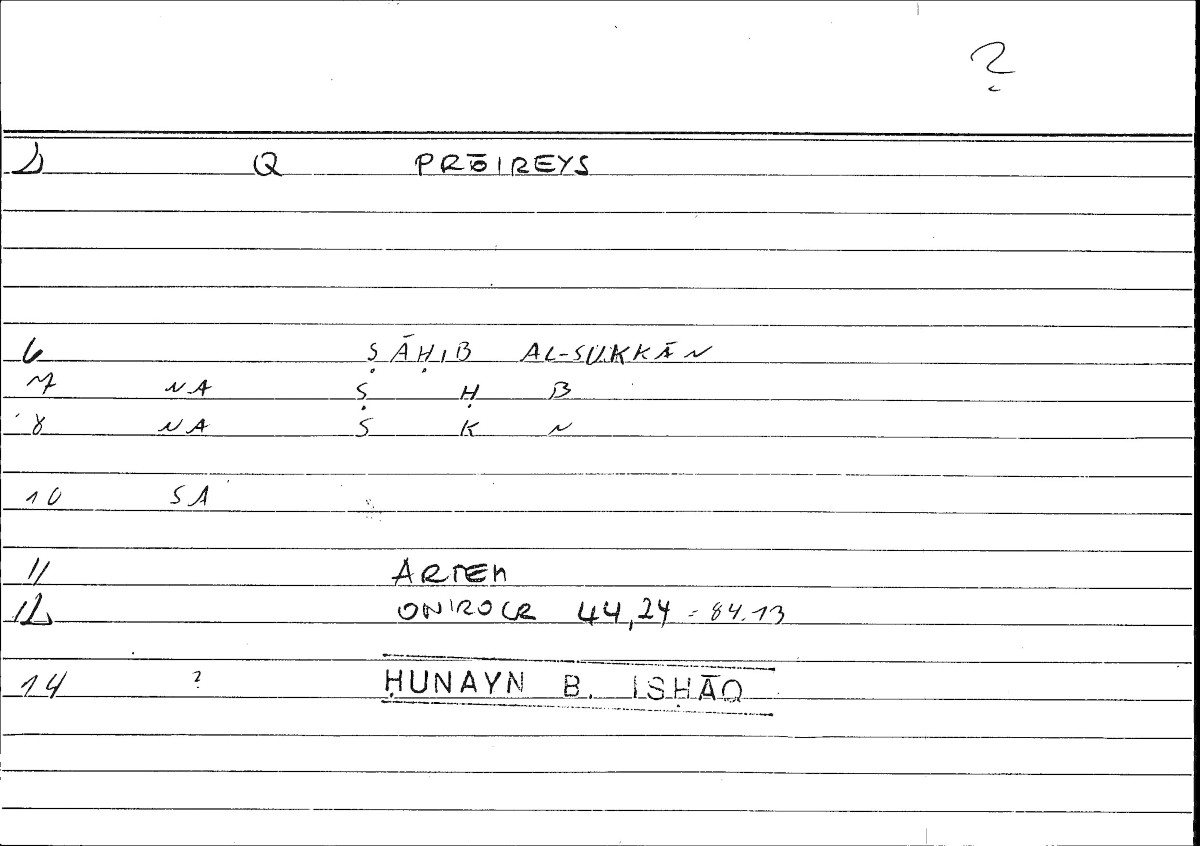 ?
1 Q PRŌIREYS
6 ṢĀḤIB AL-SUKKĀN
7 NA Ṣ Ḥ B
8 NA S K N
10 SA
11 ARTEM
12 ONIROCR 44,24 = 84.13
14 ? ḤUNAYN B. ISḤĀQ